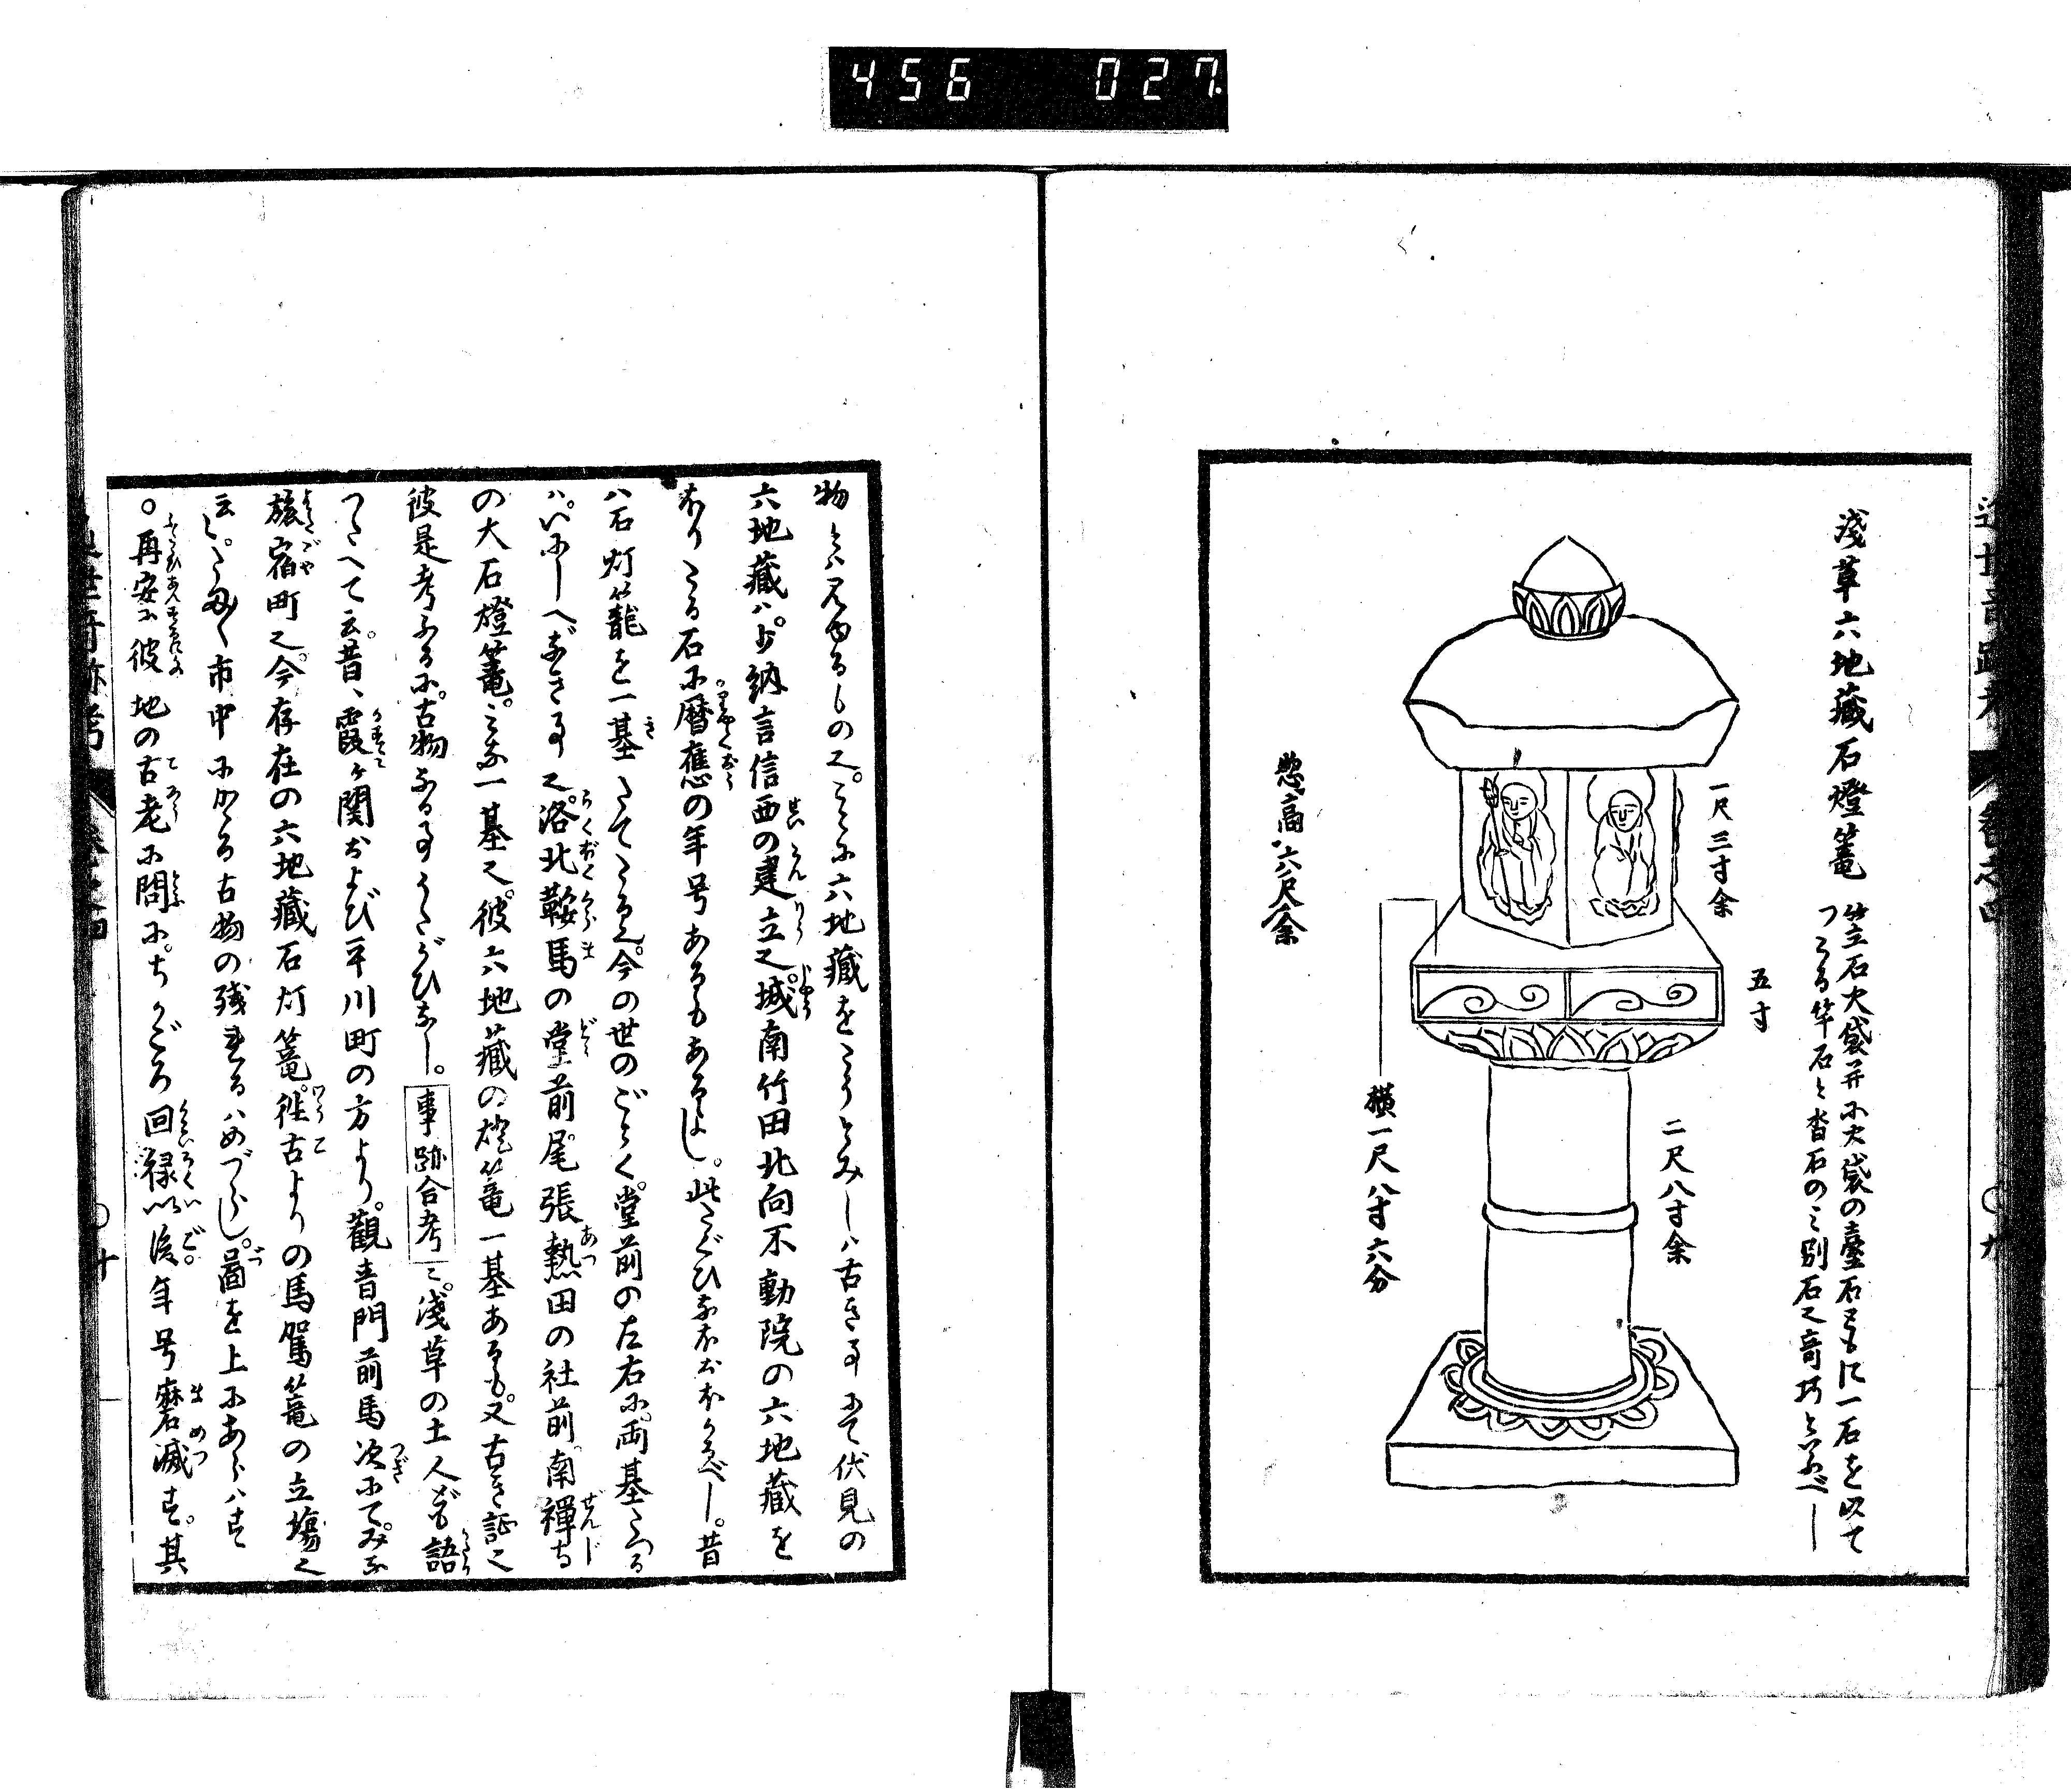 456 027
浅草六地藏石燈篭
笠石火袋并に火袋の臺石ともに一石を以て
つくる竿石と沓石のミ別石也奇巧といふべし
一尺三寸余
五寸
二尺八寸余
横一尺八寸六分
惣高サ六尺余
物とハ見ゆるもの也。こゝに六地藏をこうりふみしハ古き事にて伏見の
六地藏ハ。少納言信西の建立也。城南竹田北向不動院の六地蔵を
ほりたる石に。暦應の年号あるもあるよし。此たぐひなほおほかるべし。昔
ハ石灯籠を一基たてたる也。今の世のごとく。堂前の左右に。両基たつる
ハ。いにしへなき事也。洛北鞍馬の堂前。尾張熱田の社前。南禪寺
の大石燈篭。ミな一基也。彼六地藏の燈篭一基あるも。又古き証也
彼是考ふるに。古物なる事うたがひなし。事跡合考ニ。浅草の土人ども語
つたへて云。昔、霞ヶ関および平川町の方より。觀音門前馬次にて。みな
旅宿町也。今存在の六地藏石灯篭。徃古よりの馬駕篭の立場也
云〻。たま〳〵市中にかゝる古物の残れるハめづらし。圖を上にあらハす
○再案に彼地の古老に問に。ちかごろ回禄以後年号磨滅す。其